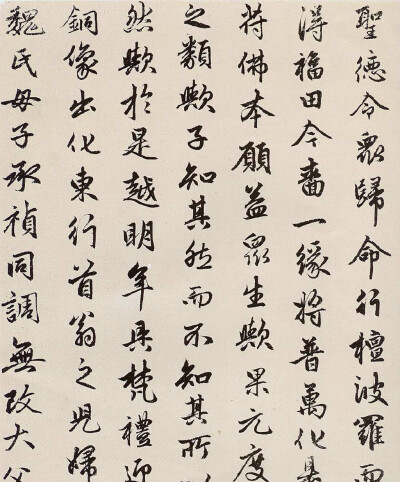 聖德令眾歸命行檀波羅而
得福田今嗇一緣將普萬化
符佛本願益眾生歟果元度
之類歟子知其然而不知其所
然歟於是越明年具梵禮迎
銅像出化東行首翁之児婦
魏氏母子承禎同調無改大父